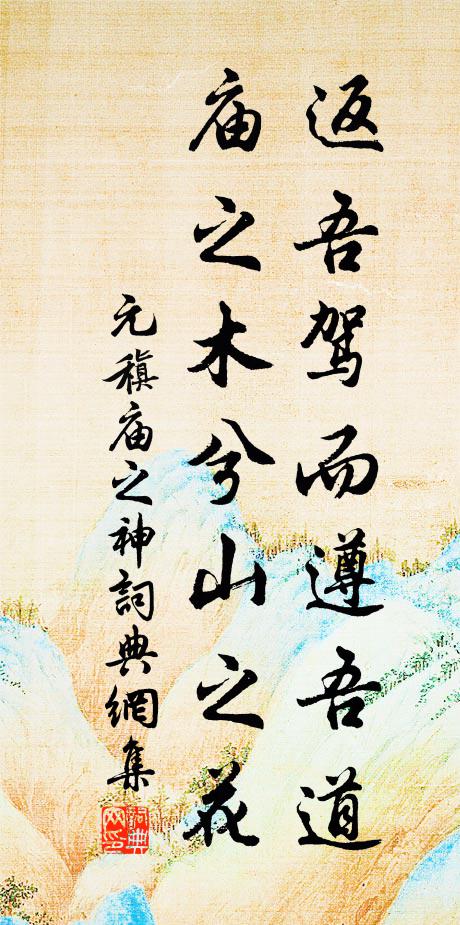 返吾驾而遵吾道
庙之木兮山之花
元稹庙之神詞典網集
詞典網印